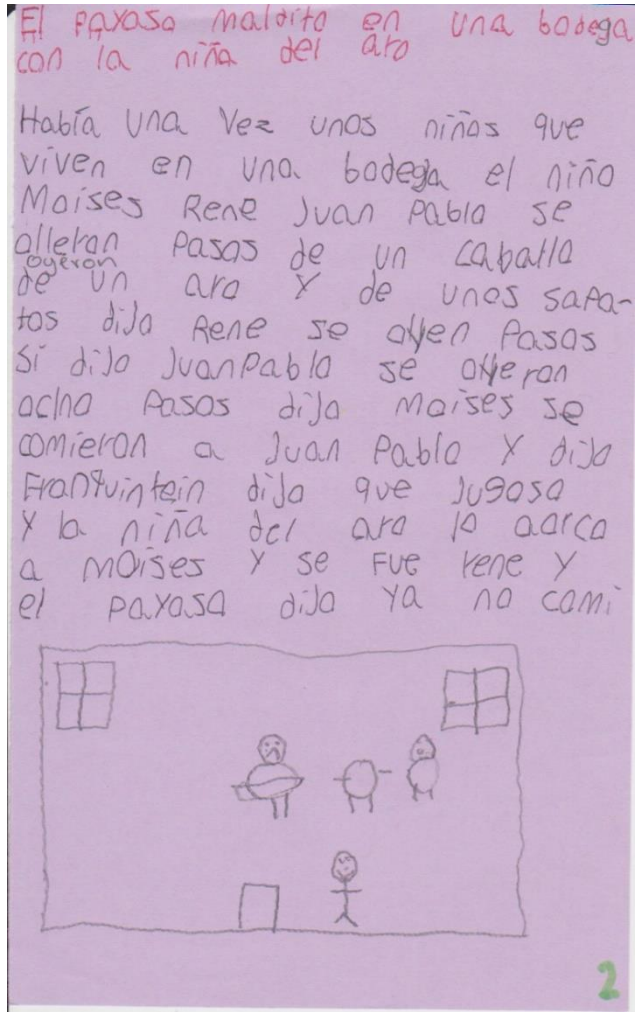 El payaso maldito en una bodega
con la niña del aro
Había una vez unos niños que
viven en una bodega el niño
Moises Rene Juan Pablo se
olleron pasos de un caballo
oyeron
de un aro y de unos sapa-
tos dijo Rene se ollen pasos
si dijo Juan Pablo se olleron
ocho pasos dijo Moises se
comieron a Juan Pablo y dijo
Franquintein dijo que jugoso
y la niña del aro lo aorco
a Moises y se fue rene y
el payaso dijo ya no comi
2